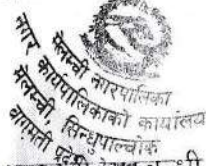 मेलम्ची नगरपालिका
नगर कार्यपालिकाको कार्यालय
मेलम्ची, सिन्धुपाल्चोक
बागमती प्रदेश